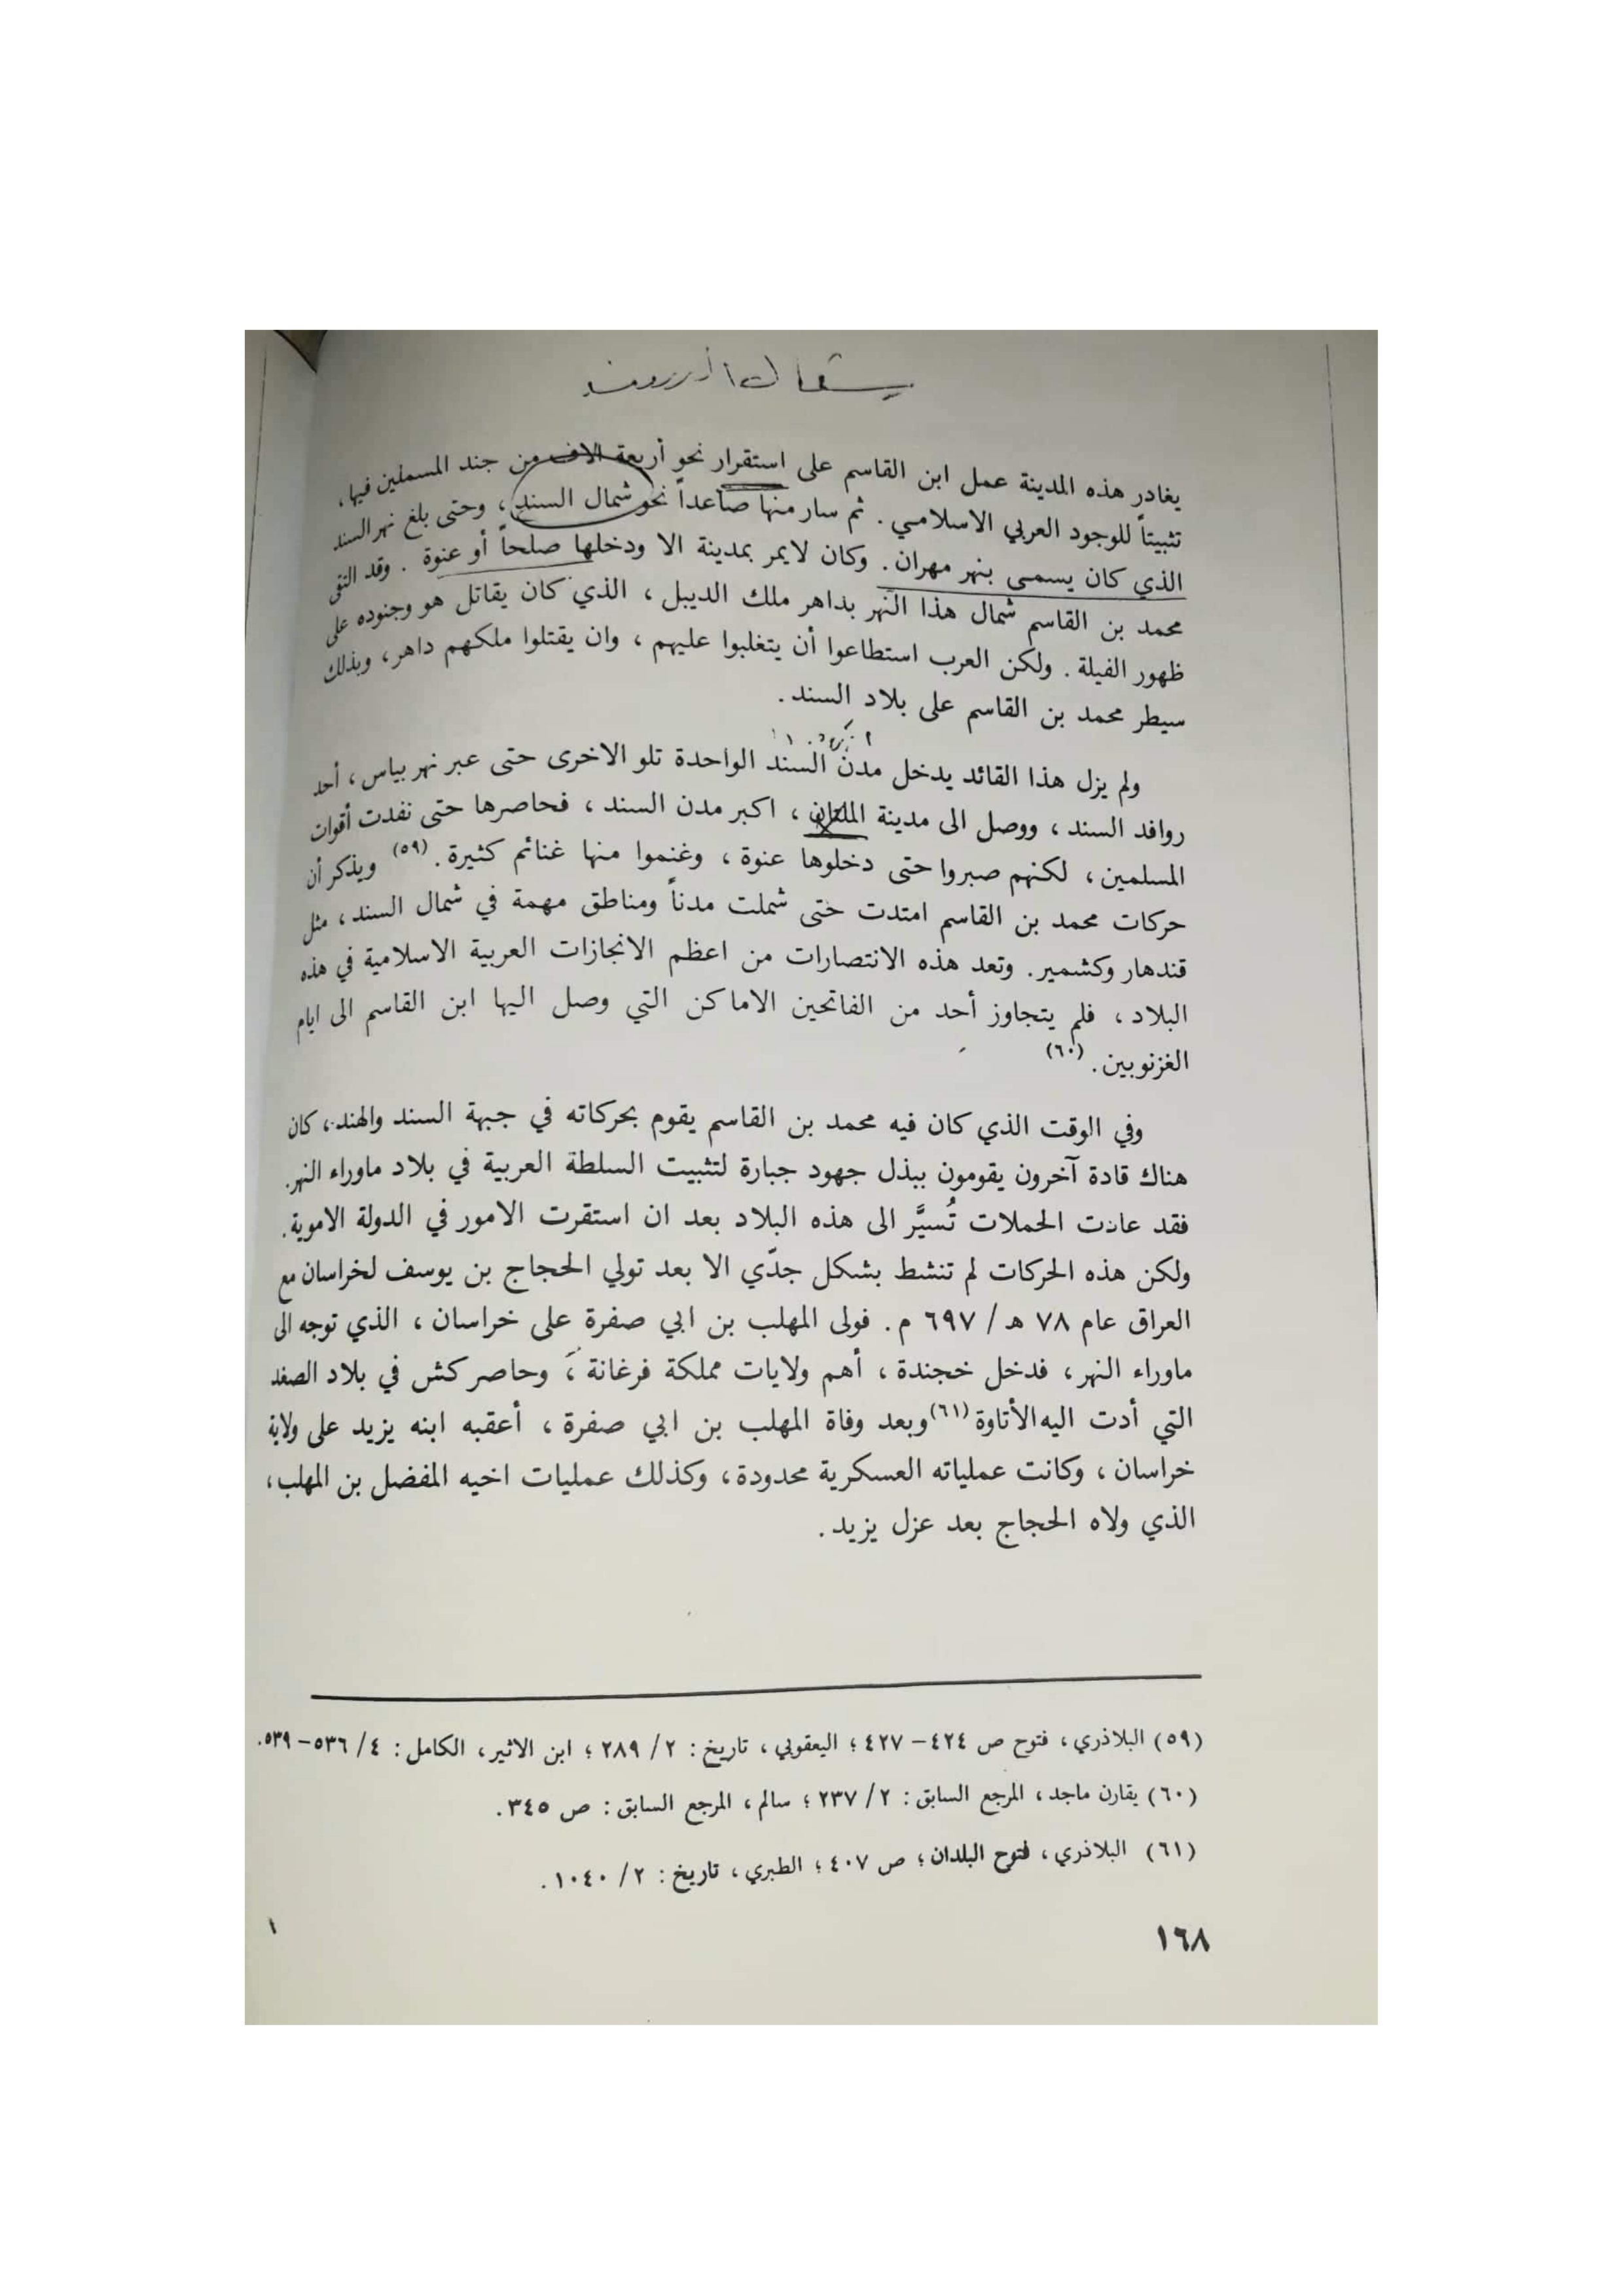 يغادر هذه المدينة عمل ابن القاسم على استقرار نحو أربعة الاف من جند المسملين فيها،
تثبيتاً للوجود العربي الاسلامي. ثم سار منها صاعداً نحو شمال السند، وحتى بلغ نهر السند
الذي كان يسمى بنهر مهران. وكان لايمر بمدينة الا ودخلها صلحاً أو عنوة. وقد التقى
محمد بن القاسم شمال هذا النهر بداهر ملك الديبل، الذي كان يقاتل هو وجنوده على
ظهور الفيلة. ولكن العرب استطاعوا أن يتغلبوا عليهم، وان يقتلوا ملكهم داهر، وبذلك
سيطر محمد بن القاسم على بلاد السند.
ولم يزل هذا القائد يدخل مدن السند الواحدة تلو الاخرى حتى عبر نهر بياس، أحد
روافد السند، ووصل الى مدينة الملتان، اكبر مدن السند، فحاصرها حتى نفدت أقوات
المسلمين، لكنهم صبروا حتى دخلوها عنوة، وغنموا منها غنائم كثيرة. (٥٩) ويذكر أن
حركات محمد بن القاسم امتدت حتى شملت مدناً ومناطق مهمة في شمال السند، مثل
قندهار وكشمير. وتعد هذه الانتصارات من اعظم الانجازات العربية الاسلامية في هذه
البلاد، فلم يتجاوز أحد من الفاتحين الاماكن التي وصل اليها ابن القاسم الى ايام
الغزنوبين. (٦٠)
وفي الوقت الذي كان فيه محمد بن القاسم يقوم بحركاته في جبهة السند والهند، كان
هناك قادة آخرون يقومون ببذل جهود جبارة لتثبيت السلطة العربية في بلاد ماوراء النهر.
فقد عادت الحملات تُسيَّر الى هذه البلاد بعد ان استقرت الامور في الدولة الاموية.
ولكن هذه الحركات لم تنشط بشكل جدّي الا بعد تولي الحجاج بن يوسف لخراسان مع
العراق عام ٧٨ هـ / ٦٩٧ م. فولى المهلب بن ابي صفرة على خراسان، الذي توجه الى
ماوراء النهر، فدخل خجندة، أهم ولايات مملكة فرغانة، وحاصر كش في بلاد الصغد
التي أدت اليه الأتاوة (٦١) وبعد وفاة المهلب بن ابي صفرة، أعقبه ابنه يزيد على ولاية
خراسان، وكانت عملياته العسكرية محدودة، وكذلك عمليات اخيه المفضل بن المهلب،
الذي ولاه الحجاج بعد عزل يزيد.
(٥٩) البلاذري، فتوح ص ٤٢٤ – ٤٢٧؛ اليعقوبي، تاريخ: ٢ / ٢٨٩؛ ابن الاثير، الكامل: ٤ / ٥٣٦ – ٥٣٩.
(٦٠) يقارن ماجد، المرجع السابق: ٢ / ٢٣٧؛ سالم، المرجع السابق: ص ٣٤٥.
(٦١) البلاذري، فتوح البلدان؛ ص ٤٠٧؛ الطبري، تاريخ: ٢ / ١٠٤٠.
١٦٨